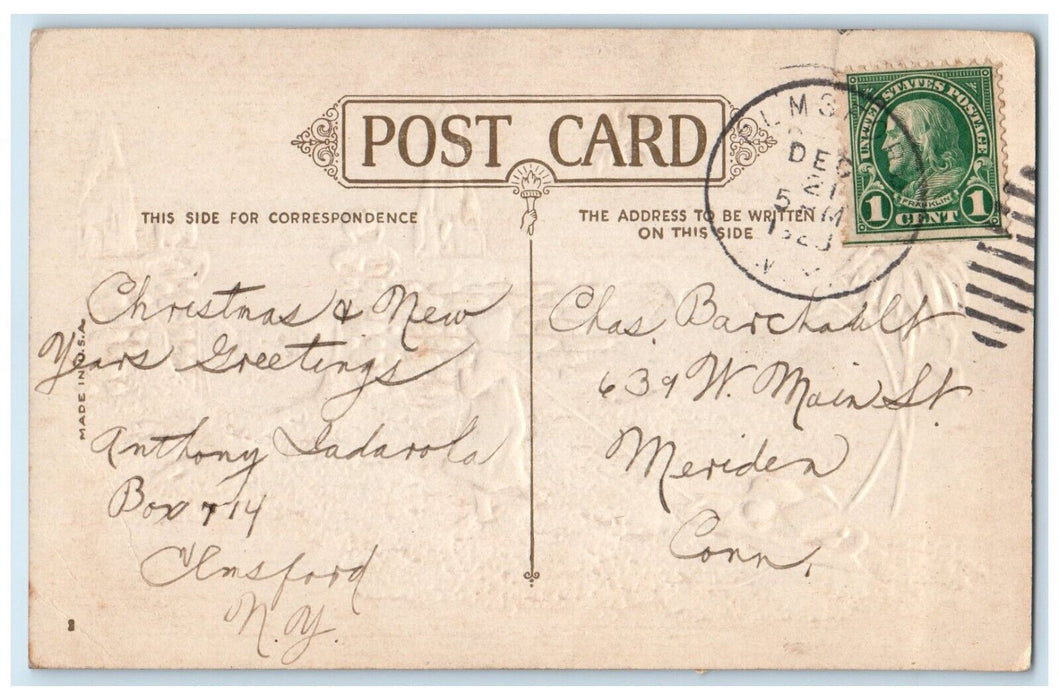 POST CARD
THIS SIDE FOR CORRESPONDENCE
THE ADDRESS TO BE WRITTEN
ON THIS SIDE
UNITED STATES POSTAGE
FRANKLIN
1 CENT 1
DEC
21
5 PM
N.Y.
Christmas & New
Years Greetings
Anthony Iadarola
Box 714
Elmsford
N.Y.
Chas. Barchadult
639 W. Main St
Meriden
Conn.
MADE IN U.S.A.